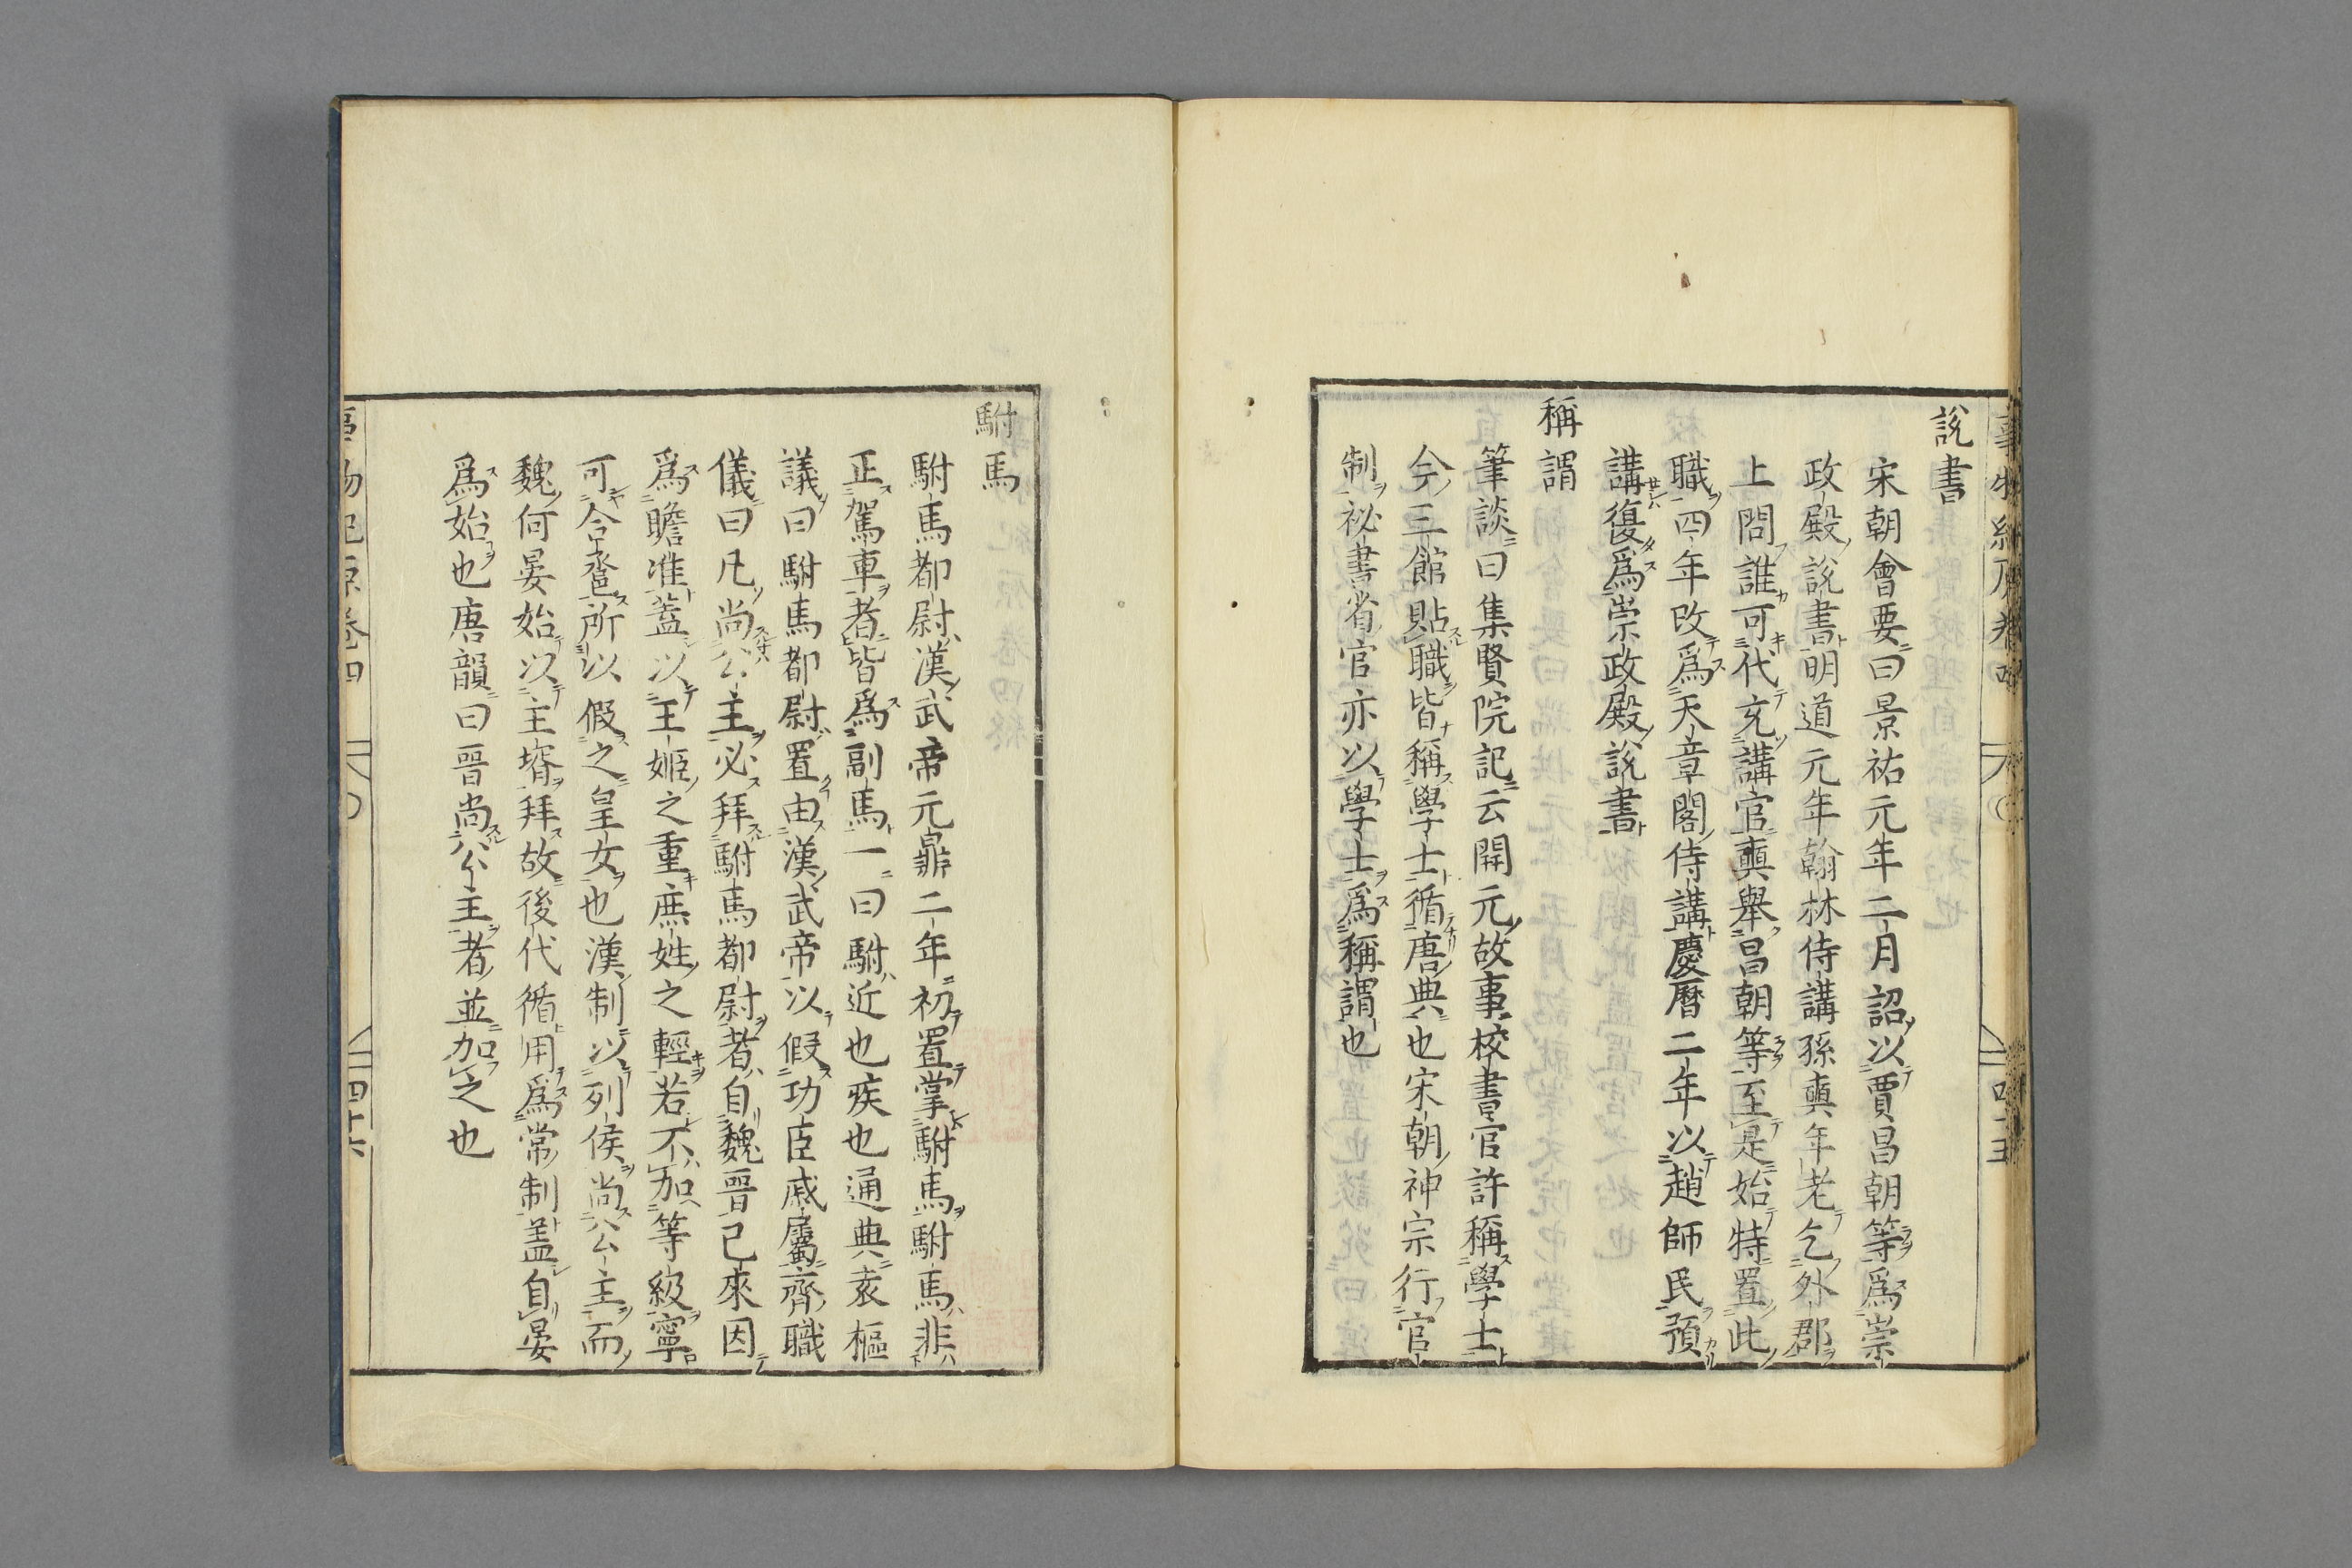 說書
宋朝會要曰景祐元年二月詔以賈昌朝等爲崇
政殿說書明道元年翰林侍講孫奭年老乞外郡
上問誰可代充講官奭舉昌朝等至是始特置此
職四年改爲天章閣侍講慶曆二年以趙師民預
講復爲崇政殿說書
稱謂
筆談曰集賢院記云開元故事校書官許稱學士
今三館貼職皆稱學士循唐典也宋朝神宗行官
制祕書省官亦以學士爲稱謂也
駙馬
駙馬都尉漢武帝元鼎二年初置掌駙馬駙馬非
正駕車者皆爲副馬一曰駙近也疾也通典袁樞
議曰駙馬都尉置由漢武帝以假功臣戚屬齊職
儀曰凡尚公主必拜駙馬都尉者自魏晉已來因
爲瞻准蓋以王姬之重庶姓之輕若不加等級寧
可合巹所以假之皇女也漢制以列侯尚公主而
魏何晏始以主壻拜故後代循用爲常制盖自晏
爲始也唐韻曰晉尚公主者並加之也
事物紀原卷四 四十六